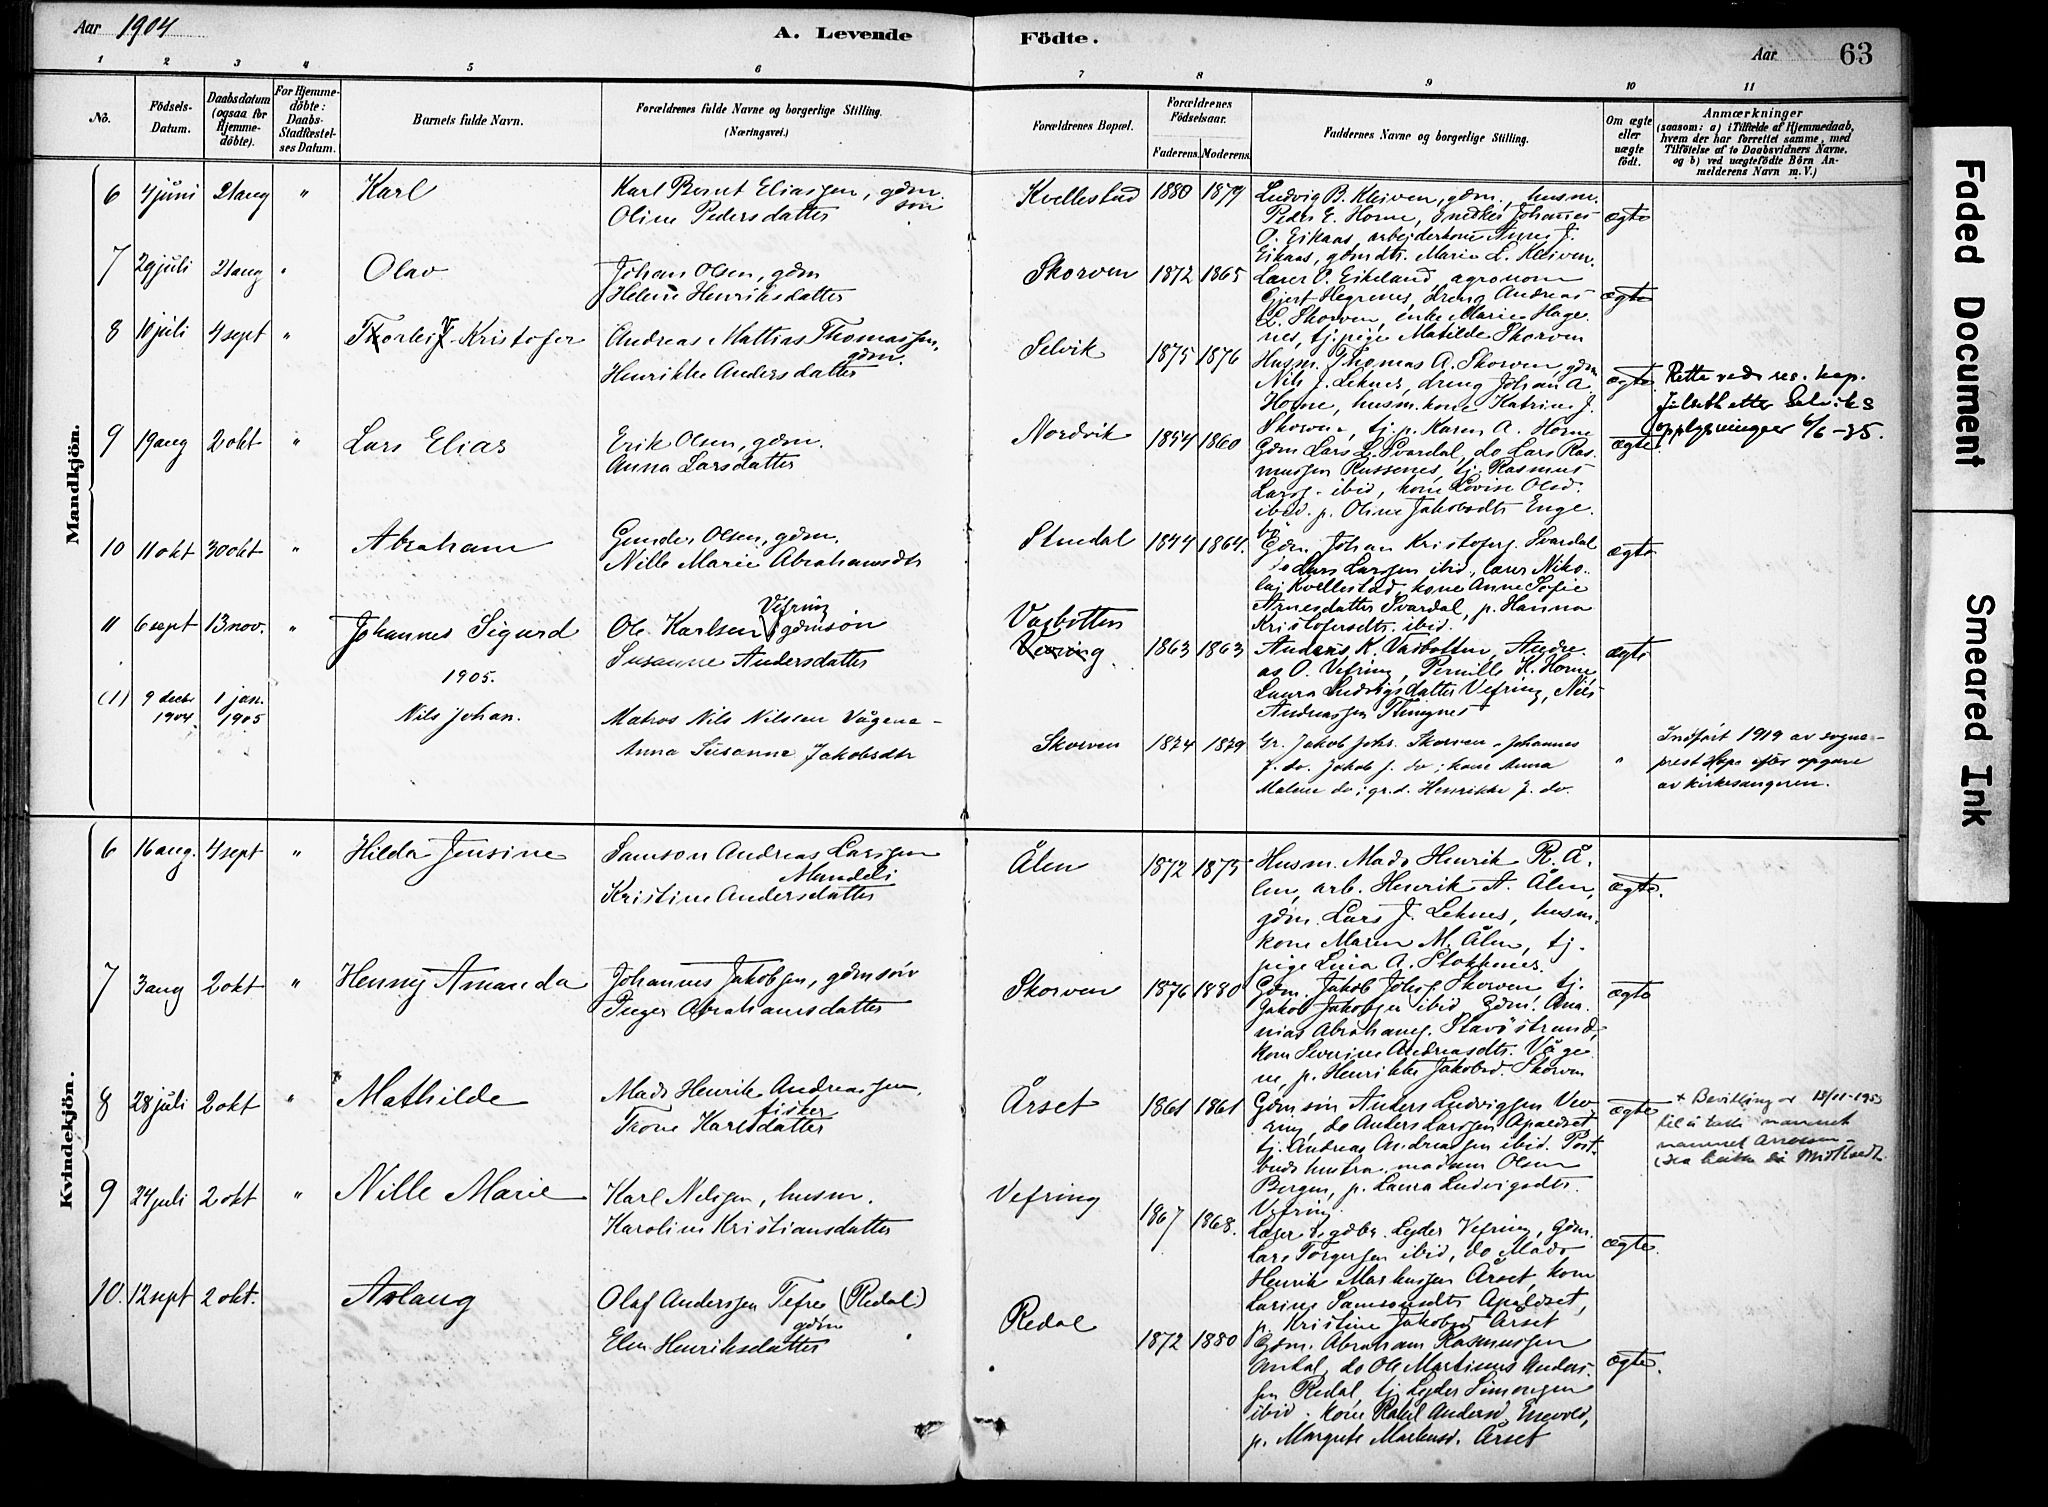 Aar 1904
A. Levende Födte.
Aar 63
1 2 3 4 5 6 7 8 9 10 11
No.
Födsels-Datum.
Daabsdatum (ogsaa for Hjemme-döbte).
For Hjemme-döbte: Daabs-Stadfæstel-ses Datum.
Barnets fulde Navn.
Forældrenes fulde Navne og borgerlige Stilling. (Næringsvei.)
Forældrenes Bopæl.
Forældrenes Födselsaar.
Faderens. Moderens.
Faddernes Navne og borgerlige Stilling.
Om ægte eller uægte födt.
Anmærkninger
(saasom: a) i Tilfælde af Hjemmedaab, hvem der har forrettet samme, med Tilföielse af to Daabsvidners Navne, og b) ved uægtefödte Börn An-melderens Navn m. V.)
Mandkjön.
6 4 juni 21 aug " Karl
Karl Bernt Eliassen, gdm. sön
Oline Pedersdatter
Kvellestad 1880 1879
Ludvig B. Kleiven, gdm., husm.
Peder E. Horne, snedker Johannes
O. Eikaas, arbejderkone Anne J.
Eikaas, gdmdtr. Marie L. Kleiven.
ægte
7 29 juli 21 aug " Olav
Johan Olsen, gdm
Helene Henriksdatter
Skorven 1872 1865
Lærer O. Eikeland, agronom
Gjert Hegrenes, dreng Andreas
L. Skorven, enke Marie Hage
nes, tj. pige Matilde Skorven
ægte
8 10 juli 4 sept " Thorleif Kristofer
Andreas Mattias Thomassen, gdm.
Henrikke Andersdatter
Selvik 1875 1876
Husm. Thomas A. Skorven gdm
Nils J. Lehnes, dreng Johan A.
Horne, husm. kone Katrine J.
Skorven, tj. p. Karen A. Horne
ægte
Rettet ved res. kap.
Julseth etter Selviks
opplysninger 6/6-35.
9 19 aug 2 okt " Lars Elias
Erik Olsen, gdm.
Anna Larsdatter
Nordvik 1854 1860
Gdm Lars L. Svardal, do Lars Ras
mussen Russenes, tj. Rasmus
Larss. ibid, kone Lovise Olsd.
ibid. p. Oline Jakobsdtr Enge
bö
ægte
10 11 okt 30 okt " Abraham
Gunder Olsen, gdm,
Nille Marie Abrahamsdtr
Stundal 1844 1864.
Gdm. Johan Kristofers. Svardal
do Lars Larssen ibid, lærer Niko
laj Kvellestad, kone Anne Sofie
Arnesdatter Svardal, p. Hanna
Kristofersdtr. ibid.
ægte
11 6 sept 13 nov. " Johannes Sigurd
Ole Karlsen Vefring gdmsön
Susanne Andersdatter
Vasbotten
Vevring 1863 1863
Anders K. Vasbotten, Andre
as O. Vefring, Pernille K. Horne
Laura Ludvigsdatter Vefring, Nils
Andreassen
ægte
1905.
(1) 9 decbr 1904. 1 jan. 1905 Nils Johan.
Matros Nils Nilsen Vågene -
Anna Susanne Jakobsdtr
Skorven 1874 1879
Gr. Jakob Johs. Skorven, Johannes
J. do. Jakob J. do; kone Anna
Malene do; gr.d. Henrikke J. do.
"
Indført 1919 av sogne-
prest efter opgave
av kirkesangeren.
Kvindekjön.
6 16 aug. 4 sept " Hilda Jensine
Samson Andreas Larssen
Kristine Andersdatter
Ålen 1872 1875
Husm. Mads Henrik R. Å-
len, arb. Henrik A. Ålen,
gdm. Lars J. Lehnes, husm.
kone Maren M. Ålen, tj.
pige Lina A. Stokkenes.
ægte.
7 3 aug 2 okt " Henny Amanda
Johannes Jakobsen, gdmsön
Inger Abrahamsdatter
Skorven 1876 1880
Gdm. Jakob Johs. Skorven tj.
Jakob Jakobsen ibid Gdm. Ana
nias Abrahams. Stavöstrand,
kone Severine Andreasdtr. Våge
ne, p. Henrikke Jakobsd. Skorven
ægte
8 28 juli 2 okt " Mathilde
Mads Henrik Andreassen, fisker
Trone Karlsdatter
Årset 1861 1861
Gdm. sön Anders Ludvigsen Vev
ring, do Anders Larssen Apaldset
tj. Andreas Andreassen ibid. Post
buds hustru, madam Olsen
Bergen, p. Laura Ludvigsdtr.
Vefring
ægte
+ Bevilling av 13/11-1953
til å ta
navnet
9 24 juli 2 okt " Nille Marie
Karl Nilssen, husm.
Karoline Kristiansdatter
Vefring 1867 1868.
Læger Lyder Vefring, gdm.
Lars Torgersen ibid, do Mads
Henrik Markussen Årset, kone
Larine Samsonsdtr Apaldset,
p. Kristine Jakobsd Årset
ægte.
10. 12 sept 2 okt. Aslaug
Olaf Anderssen Tefre (Redal) gdm
Elen Henriksdatter
Redal 1872 1880
Gdm. Abraham Rasmussen
do Ole Martinus Anders-
sen Redal, tj. Lyder Simonsen
ibid, kone Rakel Andersd.
p. Margrete Markusd. Årset
ægte.
Faded Document
Smeared Ink